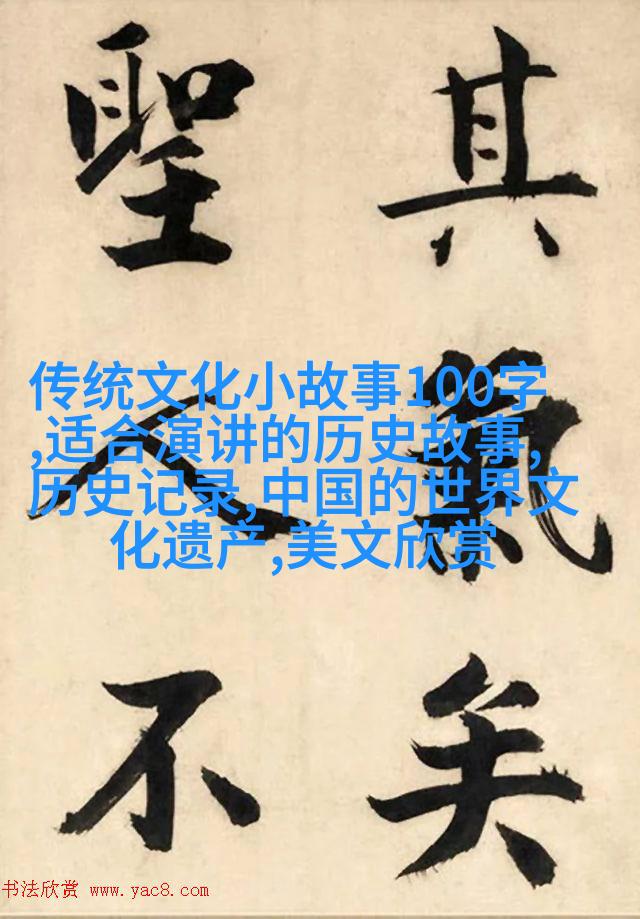 其氣矣
聖人不
传统文化小故事100字
,适合演讲的历史故事,
历史记录,中国的世界文
化遗产,美文欣赏
书法欣赏 www.yac8.com